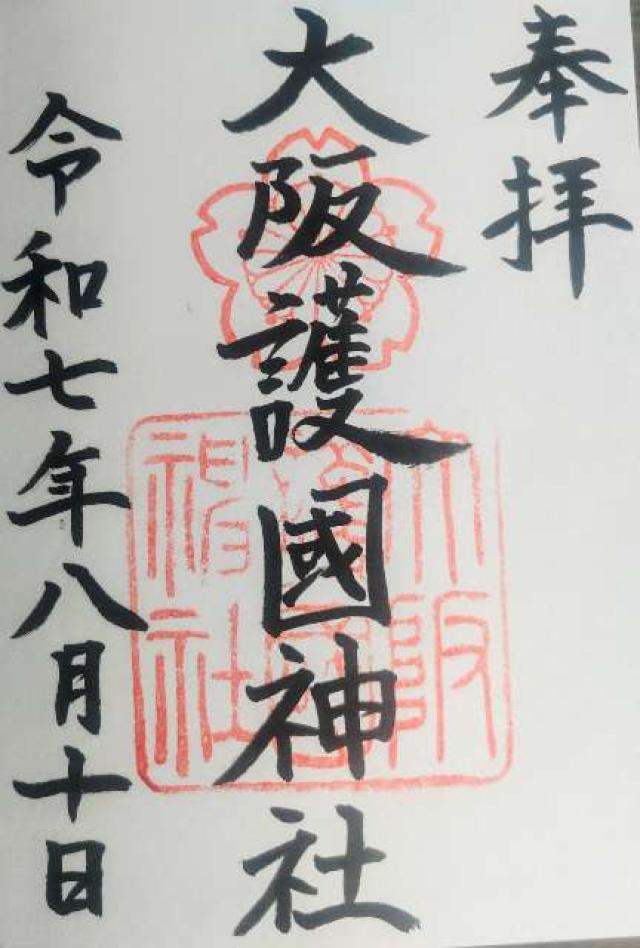 奉拝
大阪護國神社
令和七年八月十日
大阪
護國
神社